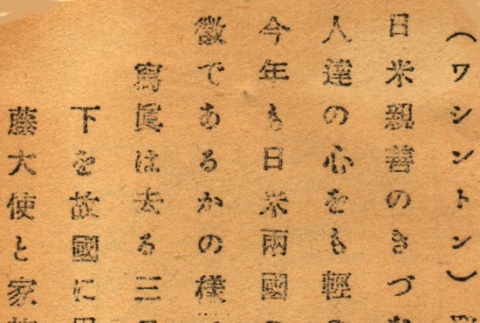 （ワシントン）
日米親善のきづ
人達の心をも輕
今年も日米兩國
徽であるかの樣
寫眞は去る三
下を故國に
藤大使と家